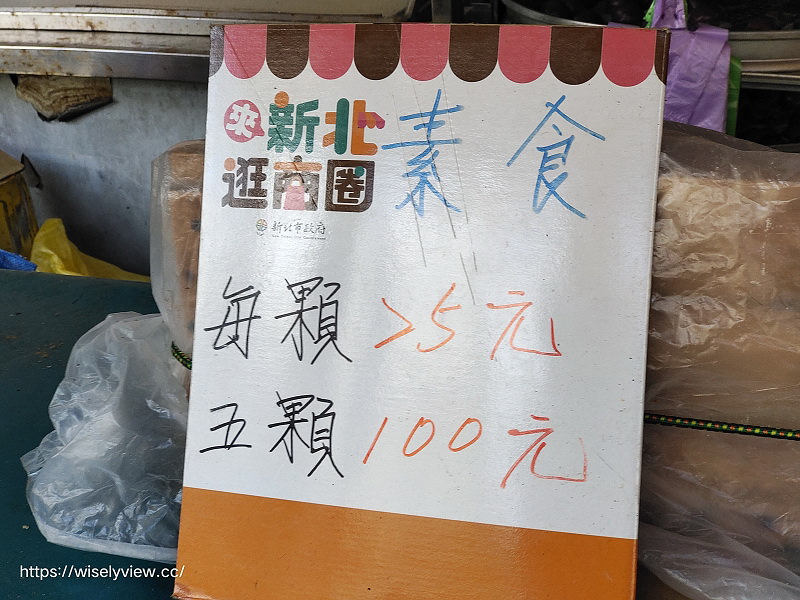 來新北 素食
逛商圈
新北市政府
每顆 25元
五顆 100元
https://wiselyview.cc/